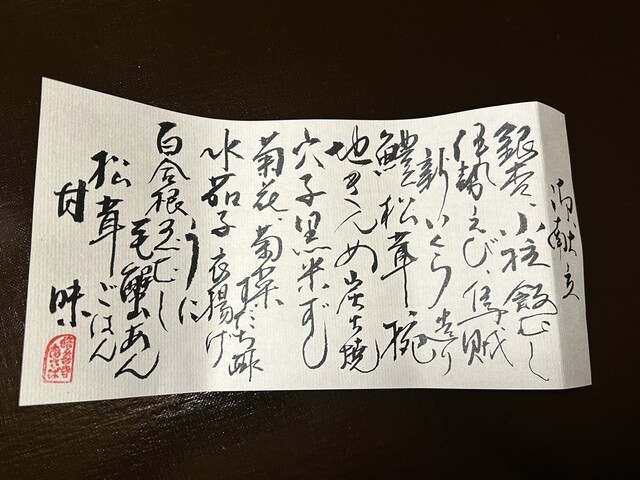 御献立
銀杏、小柱 飯むし
伊勢えび、
新いくら 造り
鱧松茸椀
地きんめ 炭火焼
穴子黒米ずし
菊花、菊菜 すだち酢
水茄子衣揚げ
うに
百合根まむし
毛蟹あん
松茸ごはん
甘味